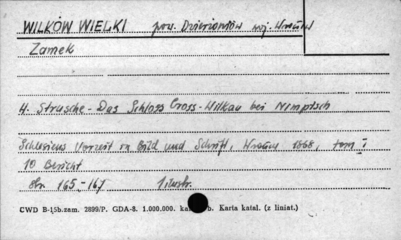 WILKÓW WIELKI pow. Dzierżoniów woj. Wrocław
Zamek
H. Strusche - Das Schloss Gross-Wilkau bei Nimptsch
Schlesiens Vorzeit in Bild und Schrift, Wrocław 1868, tom I
10 Bericht
str. 165-167 1 ilustr.
CWD B-15b.zam. 2899/P. GDA-8. 1.000.000. ka b. Karta katal. (z liniat.)